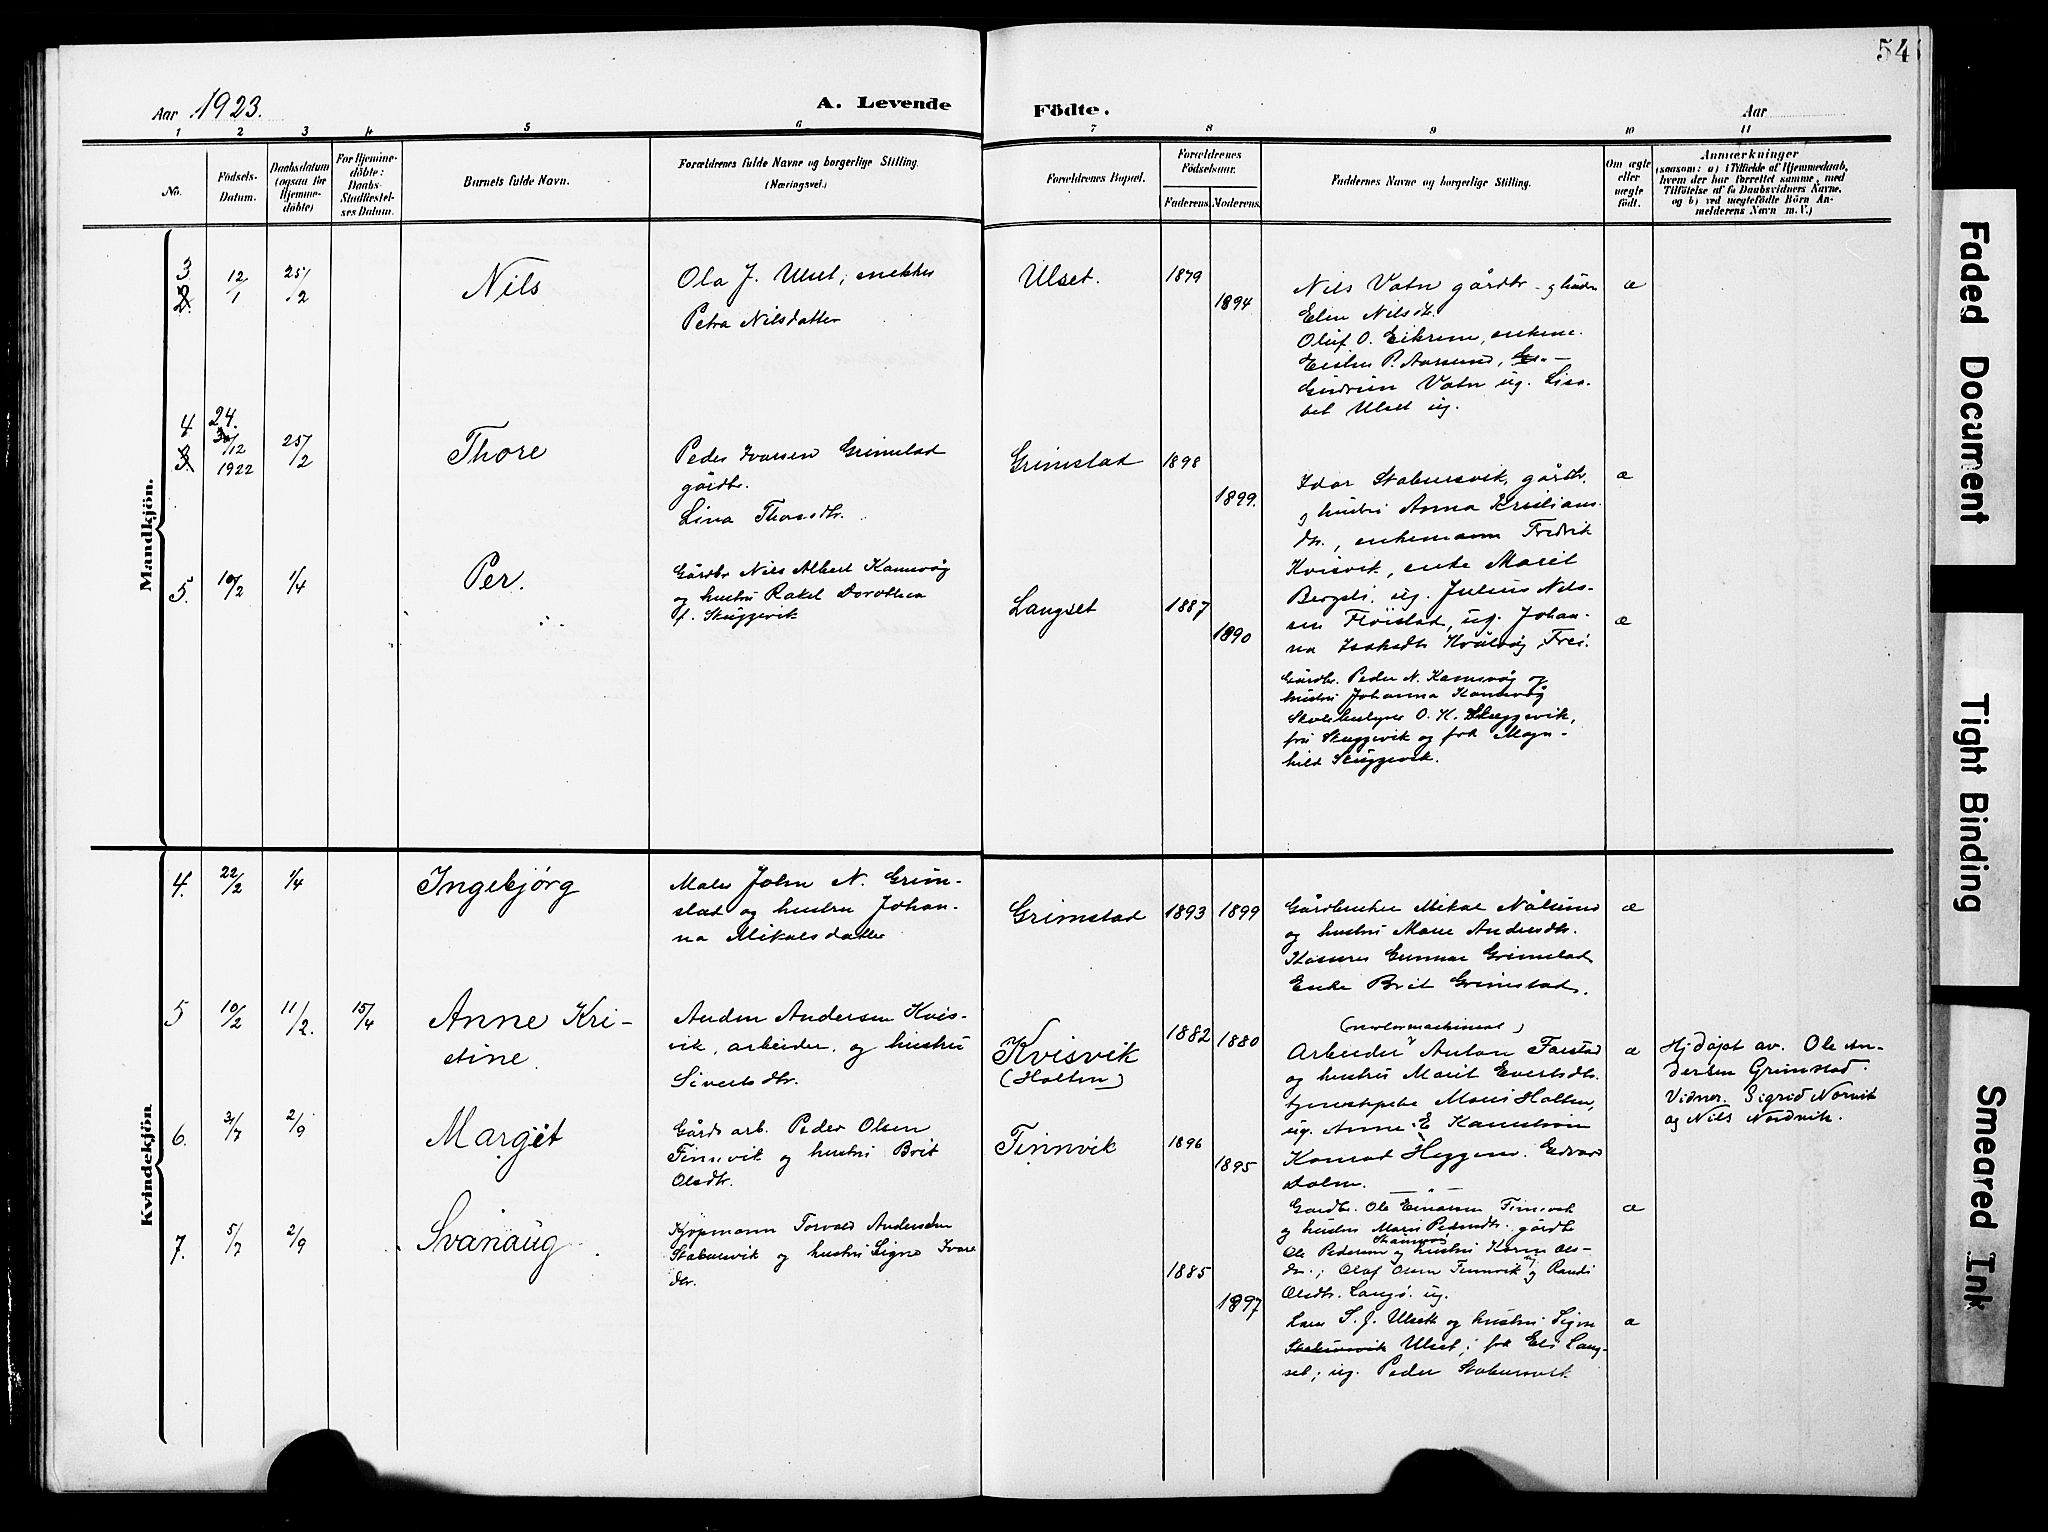 54
Aar 1923.
A. Levende
Födte.
Aar
1 2 3 4 5 6 7 8 9 10 11
No.
Födsels-
Datum.
Daabsdatum
(ogsaa for
Hjemme-
döbte)
For Hjemme-
döbte:
Daabs-
Stadfæstel-
ses Datum.
Barnets fulde Navn.
Forældrenes fulde Navne og borgerlige Stilling.
(Næringsvei.)
Forældrenes Bopæl.
Forældrenes
Födselsaar.
Faderens.
Moderens.
Faddernes Navne og borgerlige Stilling.
Om ægte
eller
uægte
födt.
Anmærkninger
(saasom: a) i Tilfælde af Hjemmedaab,
hvem der har forrettet samme, med
Tilföielse af to Daabsvidners Navne,
og b) ved uægtefödte Börn An-
melderens Navn m. V.)
Mandkjön.
3
2.
12/1
25/2
Nils
Ola J. Ulset,
Petra Nilsdatter
Ulset.
1879
1894
Nils Vatn gårdbr. og hustru
Elen Nilsdtr.
Oluf O. Eikrem, enkem.
P. Aarsund,
Gudrun Vatn ug. Lisa-
bet Ulset ug.
æ
4
3.
24.
30/12
1922
25/2
Thore
Peder Ivarsen Grimstad
gårdbr.
Lina Thoresdtr.
Grimstad
1898
1899.
Idar Stabursvik, gårdbr.
og hustru Anna Kristians-
dtr., enkemann Fredrik
Kvisvik, enke Marit
Bergsli, ug. Julius Nils-
sen Flöistad, ug. Johan-
na Isaksdtr Kvalvåg Frei.
æ
5.
10/2
1/4
Per.
Gårdbr Nils Albert Kamsvåg
og hustru Rakel Dorothea
f. Skuggevik
Langset
1887
1890
Gårdbr. Peder N. Kamsvåg og
hustru Johanna Kamsvåg
Skolebestyrer O. H. Skuggevik,
fru Skuggevik og frk Magn-
hild Skuggevik.
æ
Kvindekjön.
4.
22/2
1/4
Ingebjørg
Maler John N. Grim-
stad og hustru Johan-
na Mikalsdatter
Grimstad
1893
1899
Gårdbruker Mikal Nålsund
og hustru Marie Andersdtr.
Kasserer Gunnar Grimstad
Enke Brit Grimstad.
æ
5
10/2
11/2.
15/4
Anne Kri-
stine
Anders Andersen Kvis-
vik, arbeider, og hustru
Sivertsdtr.
Kvisvik
(Holten)
1882
1880
(motormaskinist)
Arbeider Anton Farstad
og hustru Marit Evertsdtr.
tjenestepike Maris Holten,
ug. Anne E
Konrad Heggem. Edvard
Dalen.
æ
Hj.døpt av. Ole An-
dersen Grimstad.
Vidner. Sigrid Norvik
og Nils Nordvik.
6.
3/7
2/9
Margit
Gårds arb. Peder Olsen
Finnvik og hustru Brit
Olsdtr.
Finnvik
1896
1895
Gårdbr. Ole Einarsen Finnvik
og hustru Marit Pedersdtr. gårdbr
Ole Pedersen og hustru Karen Ols-
dtr.; Olaf Olsen Finnvik og Randi
Olsdtr. Langö. ug.
æ
7.
5/7
2/9
Svanaug
Kjøpmann Torvald Andersen
Stabursvik og hustru Signe Ivars
dtr.
1885
1897
Lars S. J. Ulset og hustru Signe
Stabursvik Ulset; frk Eli Lang-
set; ug. Peder Stabursvik
æ
Faded Document
Tight Binding
Smeared Ink